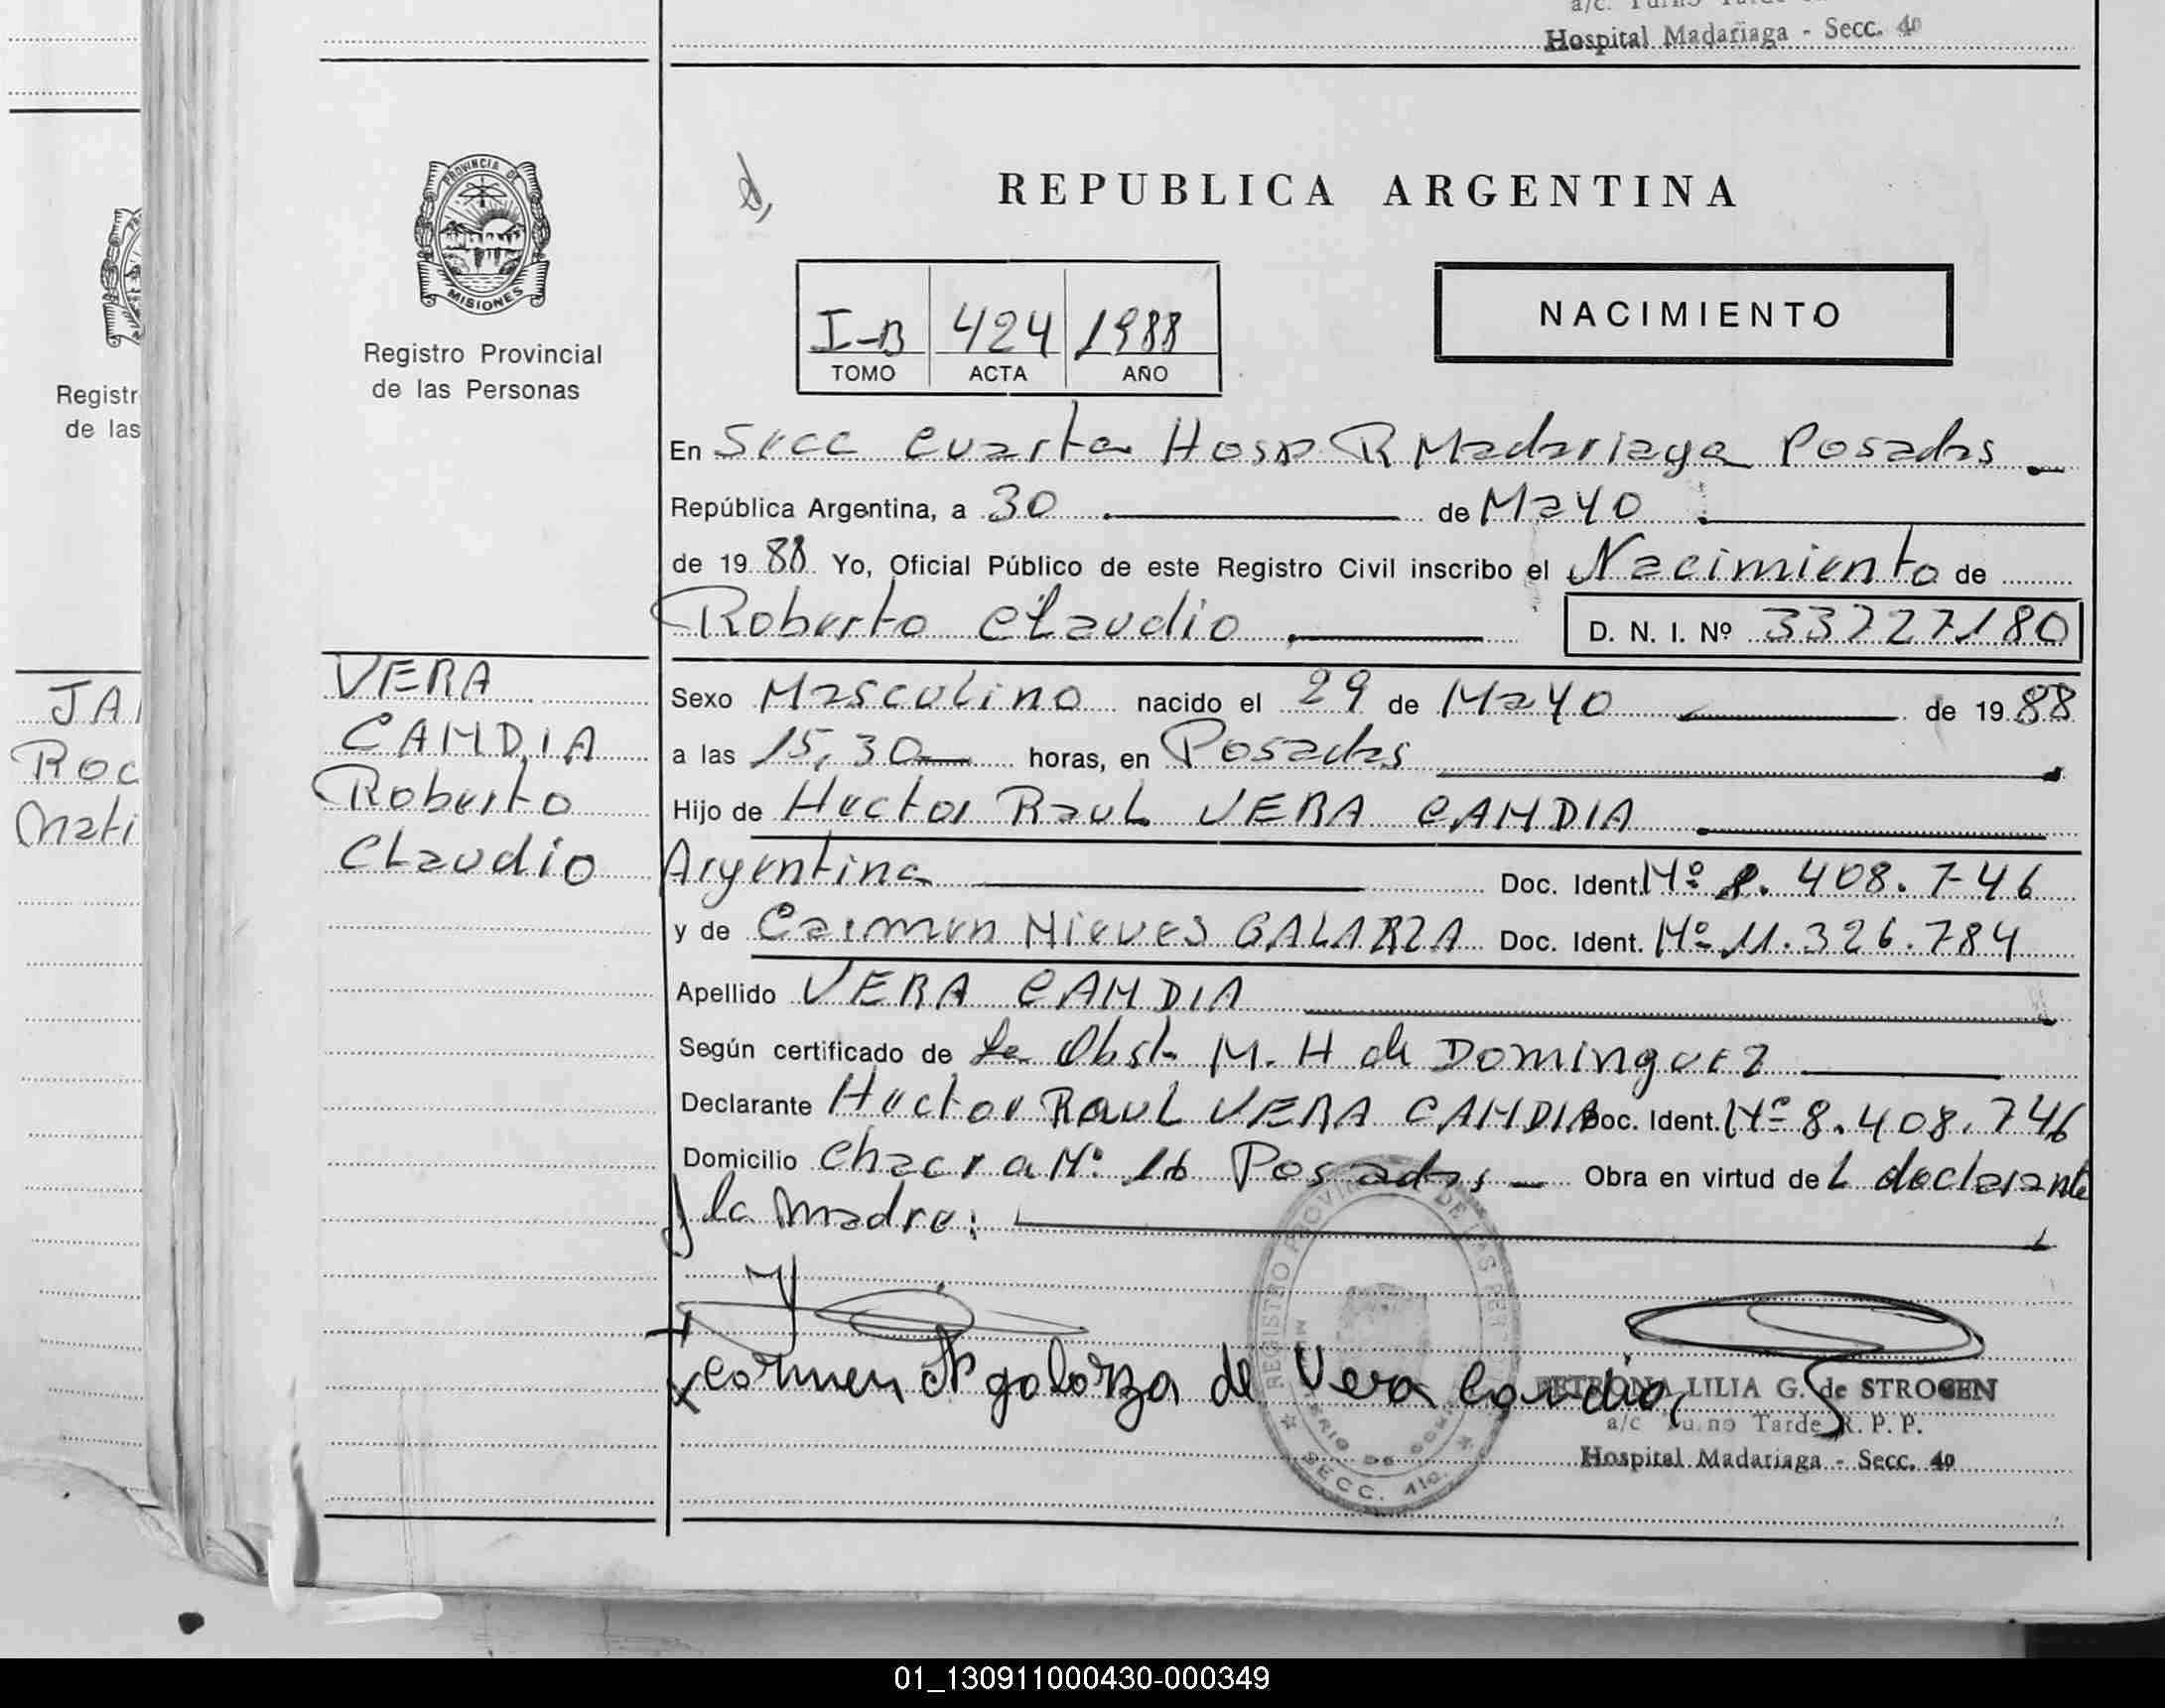 Hospital Madariaga - Secc. 4º
PROVINCIA DE
MISIONES
Registro Provincial
de las Personas
Registr
de las
REPUBLICA ARGENTINA
I-B 424 1988
TOMO ACTA AÑO
NACIMIENTO
En Secc Cuarta Hosp R Madariaga Posadas
República Argentina, a 30 de Mayo
de 1988 Yo, Oficial Público de este Registro Civil inscribo el Nacimiento de
Roberto Claudio D. N. I. Nº 33727180
JA
Roc
Mati
VERA
CANDIA
Roberto
Claudio
Sexo Masculino nacido el 29 de Mayo de 1988
a las 15,30 horas, en Posadas
Hijo de Hector Raul VERA CANDIA
Argentina Doc. Ident. Nº 8.408.746
y de Carmen Nieves GALARZA Doc. Ident. Nº 11.326.784
Apellido VERA CANDIA
Según certificado de la Obst. M. H de Dominguez
Declarante Hector Raul VERA CANDIA Doc. Ident. Nº 8.408.746
Domicilio Chacra Nº 16 Posadas Obra en virtud del declarante
y la madre:
Carmen N galarza de Vera Candia
REGISTRO PROVINCIAL DE LAS PERSONAS
SECC. 4ta.
PETRONA LILIA G. de STROGEN
a/c Turno Tarde R. P. P.
Hospital Madariaga - Secc. 4º
01_130911000430-000349